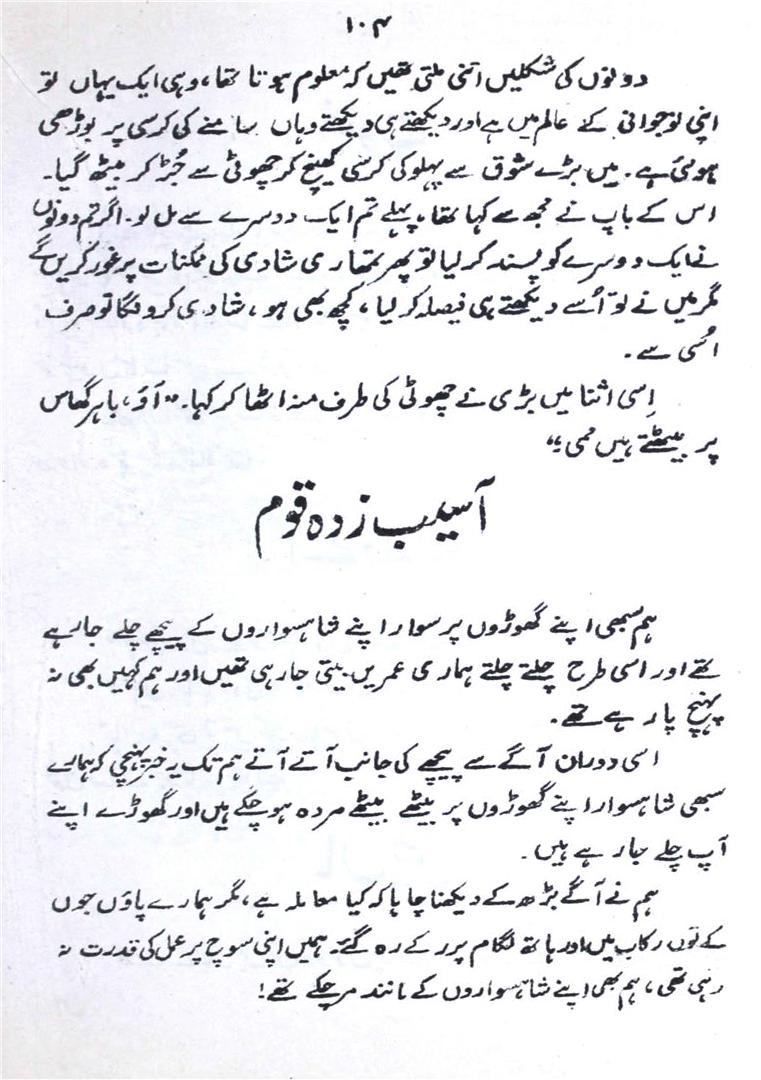 ۱۰۴
دونوں کی شکلیں اتنی ملتی تھیں کہ معلوم ہوتا تھا، وہی ایک یہاں تو
اپنی نوجوانی کے عالم میں ہے اور دیکھتے ہی دیکھتے وہاں سامنے کی کرسی پر بوڑھی
ہوگئی ہے۔ میں بڑے شوق سے پہلو کی کرسی کھینچ کر چھوٹی سے جُڑ کر بیٹھ گیا۔
اس کے باپ نے مجھ سے کہا تھا، پہلے تم ایک دوسرے سے مل لو۔ اگر تم دونوں
نے ایک دوسرے کو پسند کر لیا تو پھر تمھاری شادی کی ممکنات پر غور کریں گے
مگر میں نے تو اُسے دیکھتے ہی فیصلہ کر لیا، کچھ بھی ہو، شادی کروں گا تو صرف
اُسی سے۔
اِسی اثنا میں بڑی نے چھوٹی کی طرف منہ اٹھا کر کہا۔ "آؤ، باہر گھاس
پر بیٹھتے ہیں ممی!"
آسیب زدہ قوم
ہم سبھی اپنے گھوڑوں پر سوار اپنے شاہسواروں کے پیچھے چلے جا رہے
تھے اور اسی طرح چلتے چلتے ہماری عمریں بیتی جا رہی تھیں اور ہم کہیں بھی نہ
پہنچ پا رہے تھے۔
اسی دوران آگے سے پیچھے کی جانب آتے آتے ہم تک یہ خبر پہنچی کہ ہمارے
سبھی شاہسوار اپنے گھوڑوں پر بیٹھے بیٹھے مردہ ہو چکے ہیں اور گھوڑے اپنے
آپ چلے جا رہے ہیں۔
ہم نے آگے بڑھ کے دیکھنا چاہا کہ کیا معاملہ ہے، مگر ہمارے پاؤں جوں
کے توں رکاب میں اور ہاتھ لگام پر رکے رہ گئے۔ ہمیں اپنی سوچ پر عمل کی قدرت نہ
رہی تھی، ہم بھی اپنے شاہسواروں کے مانند مر چکے تھے!